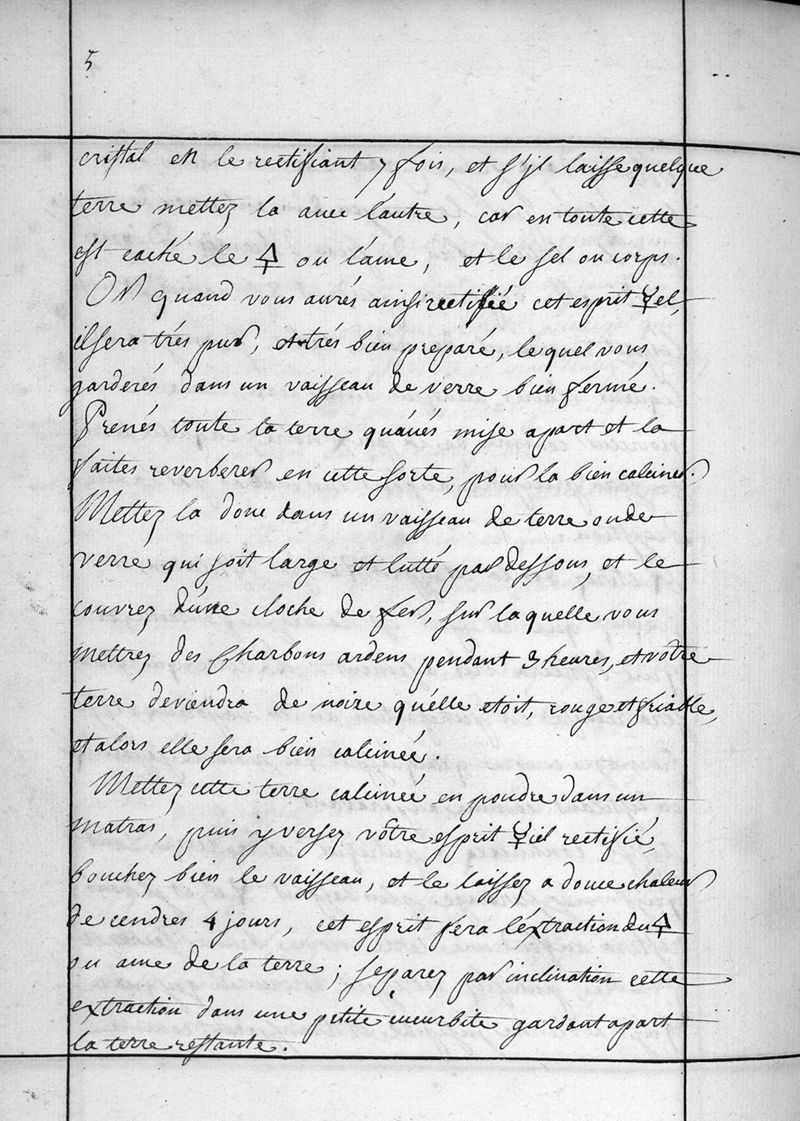 5
cristal en le rectifiant 7 fois, et s'jl laisse quelque
terre mettez la avec l'autre, car en toute cette
est caché le 🜍 ou l'ame, et le sel ou corps.
Or quand vous aurés ainsi rectifié cet esprit ☿el,
il sera trés pur, et trés bien preparé, lequel vous
garderés dans un vaisseau de verre bien fermé.
Prenés toute la terre qu'avés mise apart et la
faites reverberer en cette sorte, pour la bien calciner.
Mettez la donc dans un vaisseau de terre ou de
verre qui soit large et lutté par dessous, et le
couvrez d'une cloche de fer, sur laquelle vous
mettrez des Charbons ardens pendant 3 heures, et vôtre
terre deviendra de noire qu'elle etoit, rouge et friable,
et alors elle sera bien calcinée.
Mettez cette terre calcinée en poudre dans un
matras, puis y versez vôtre esprit ☿iel rectifié,
bouchez bien le vaisseau, et le laissez a douce chaleur
de cendres 4 jours, cet esprit fera l'éxtraction du 🜍
ou ame de la terre; separez par inclination cette
extraction dans une petite cucurbite gardant apart
la terre restante.